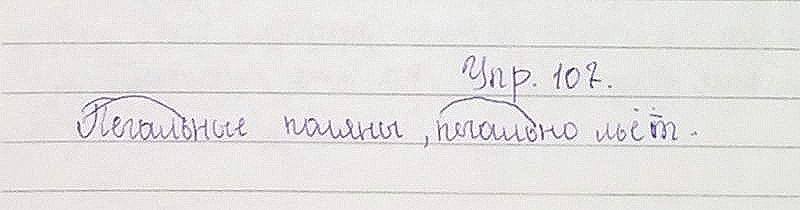 Упр. 107.
Печальные поляны, печально льёт.